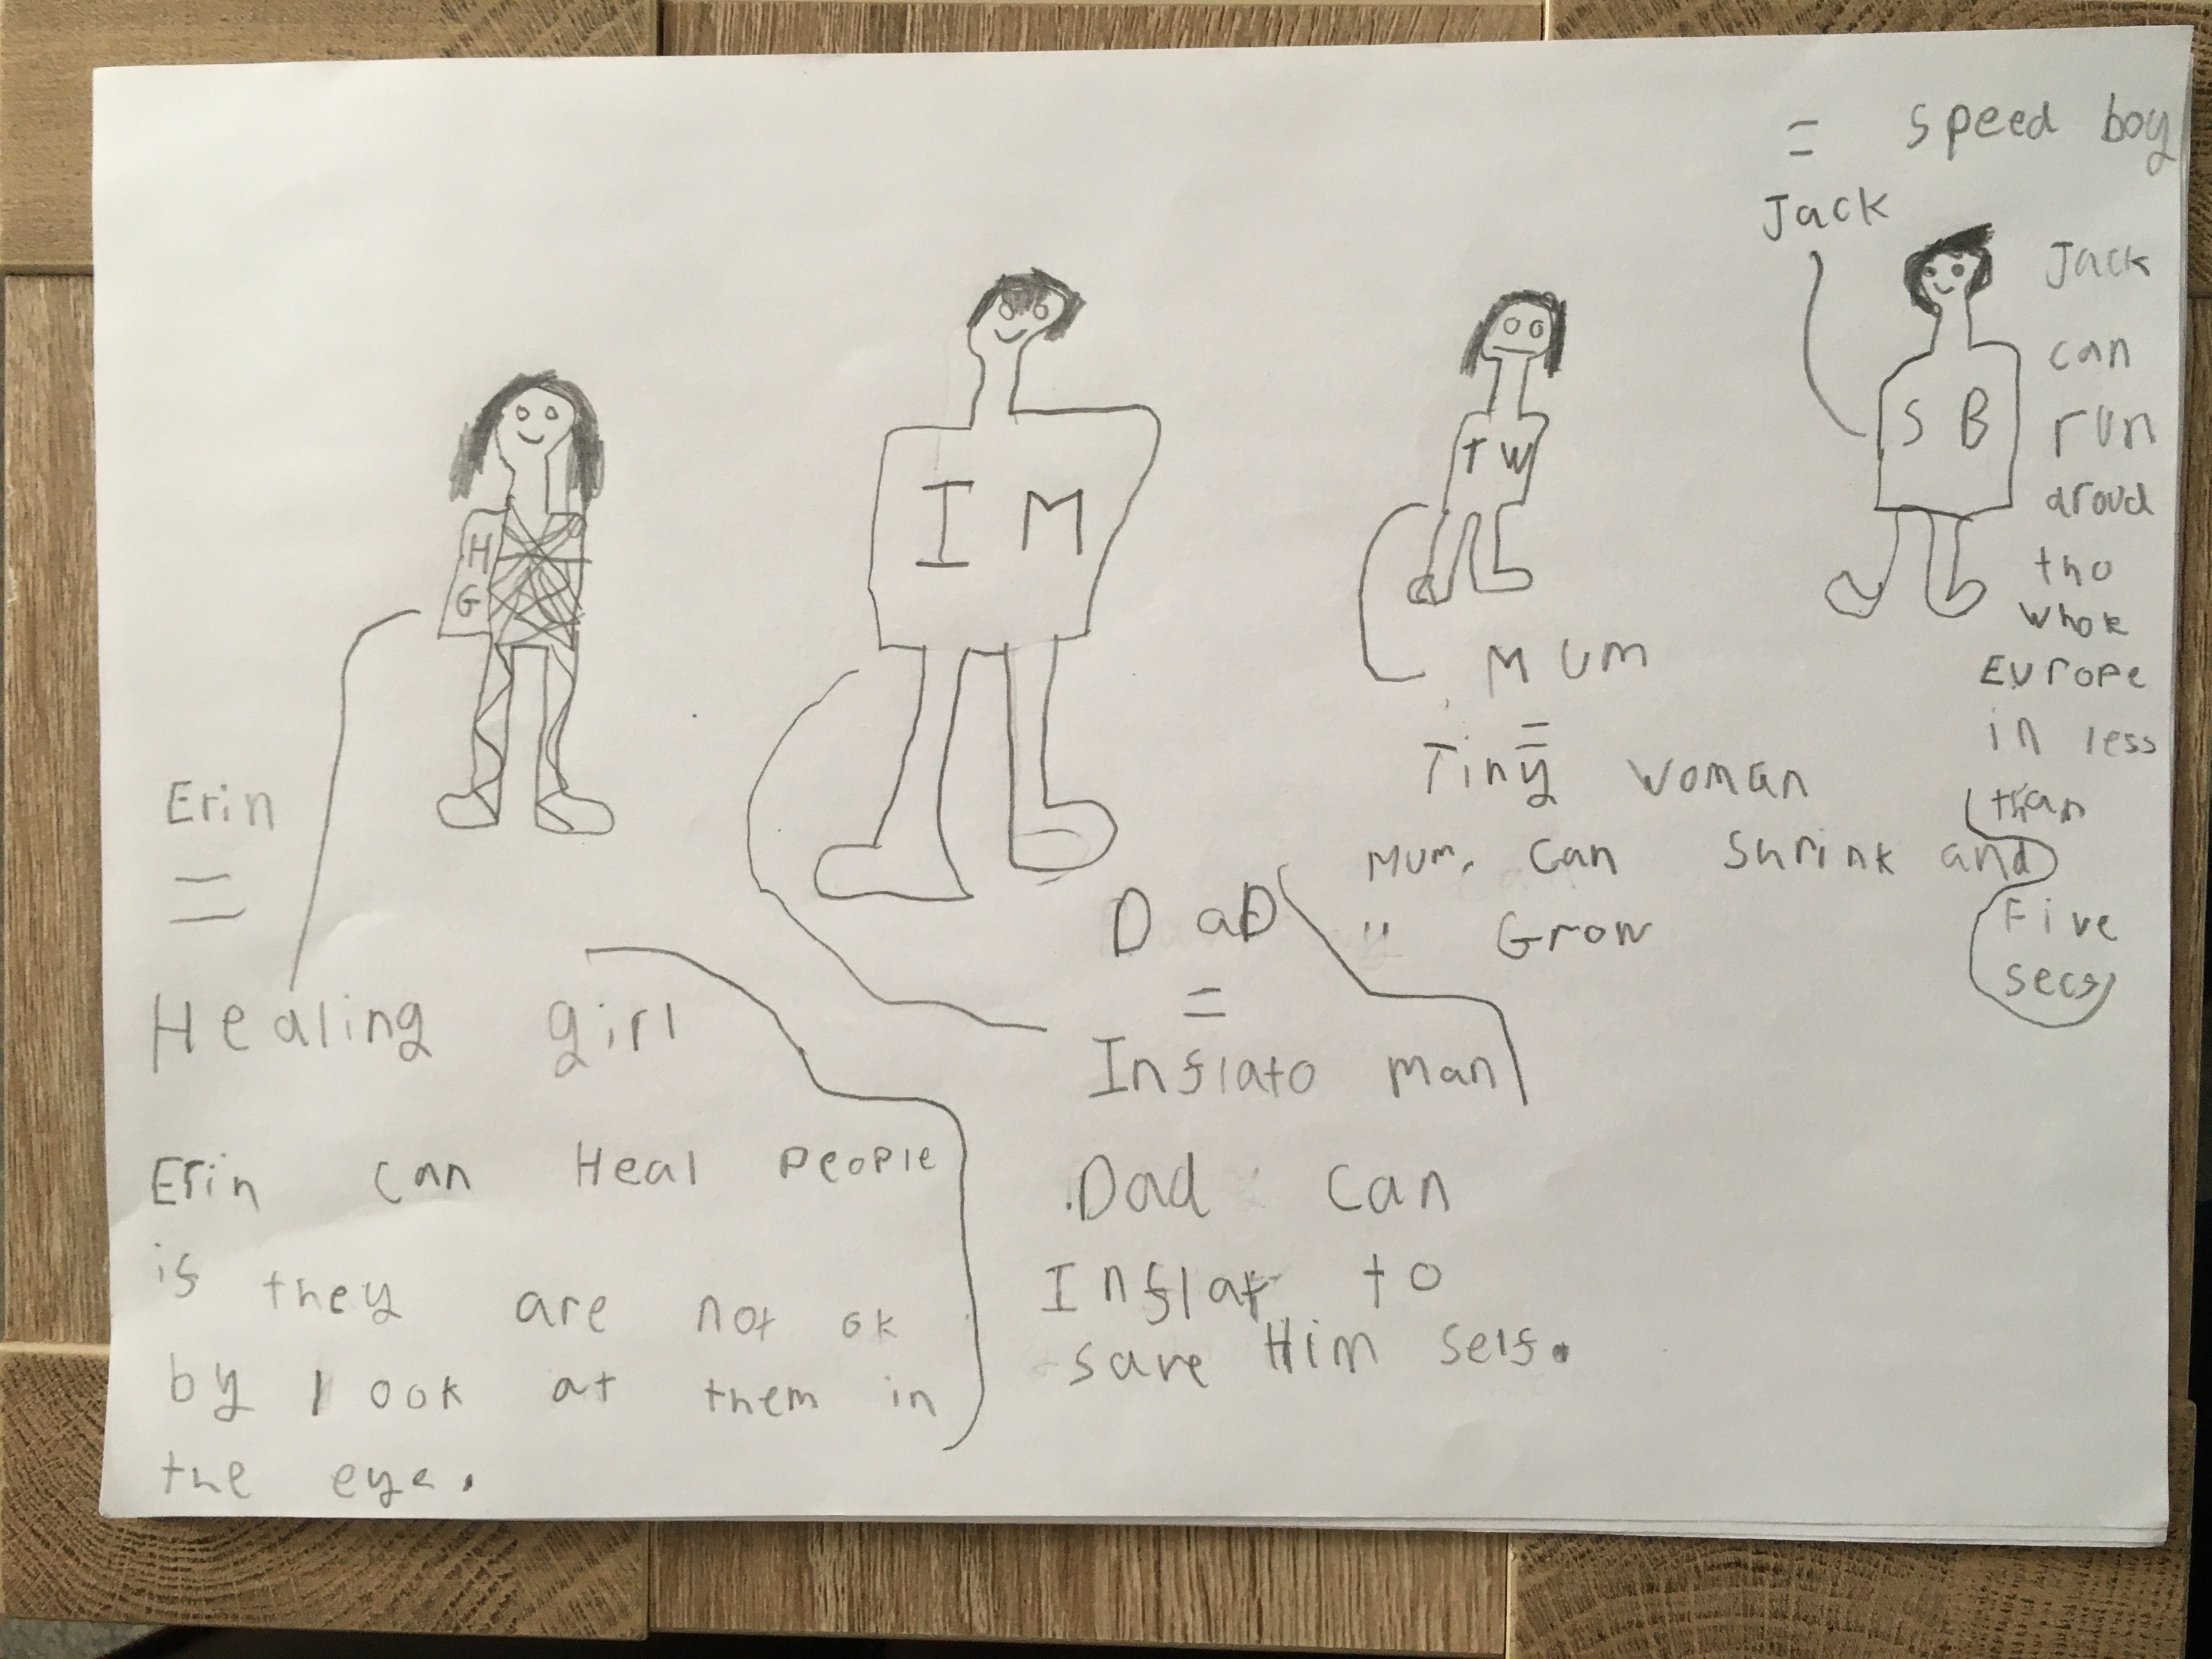 = speed boy
Jack
Jack
can
run
aroud
tho
whole
Europe
in less
than
Five
secs
H
G
I M
T W
S B
Mum
=
Tiny woman
Mum can shrink and
" Grow
Erin
=
Healing girl
Erin can Heal people
is they are not ok
by look at them in
the eye.
DaD
=
Inflato man
Dad can
Inflat to
save Him self.